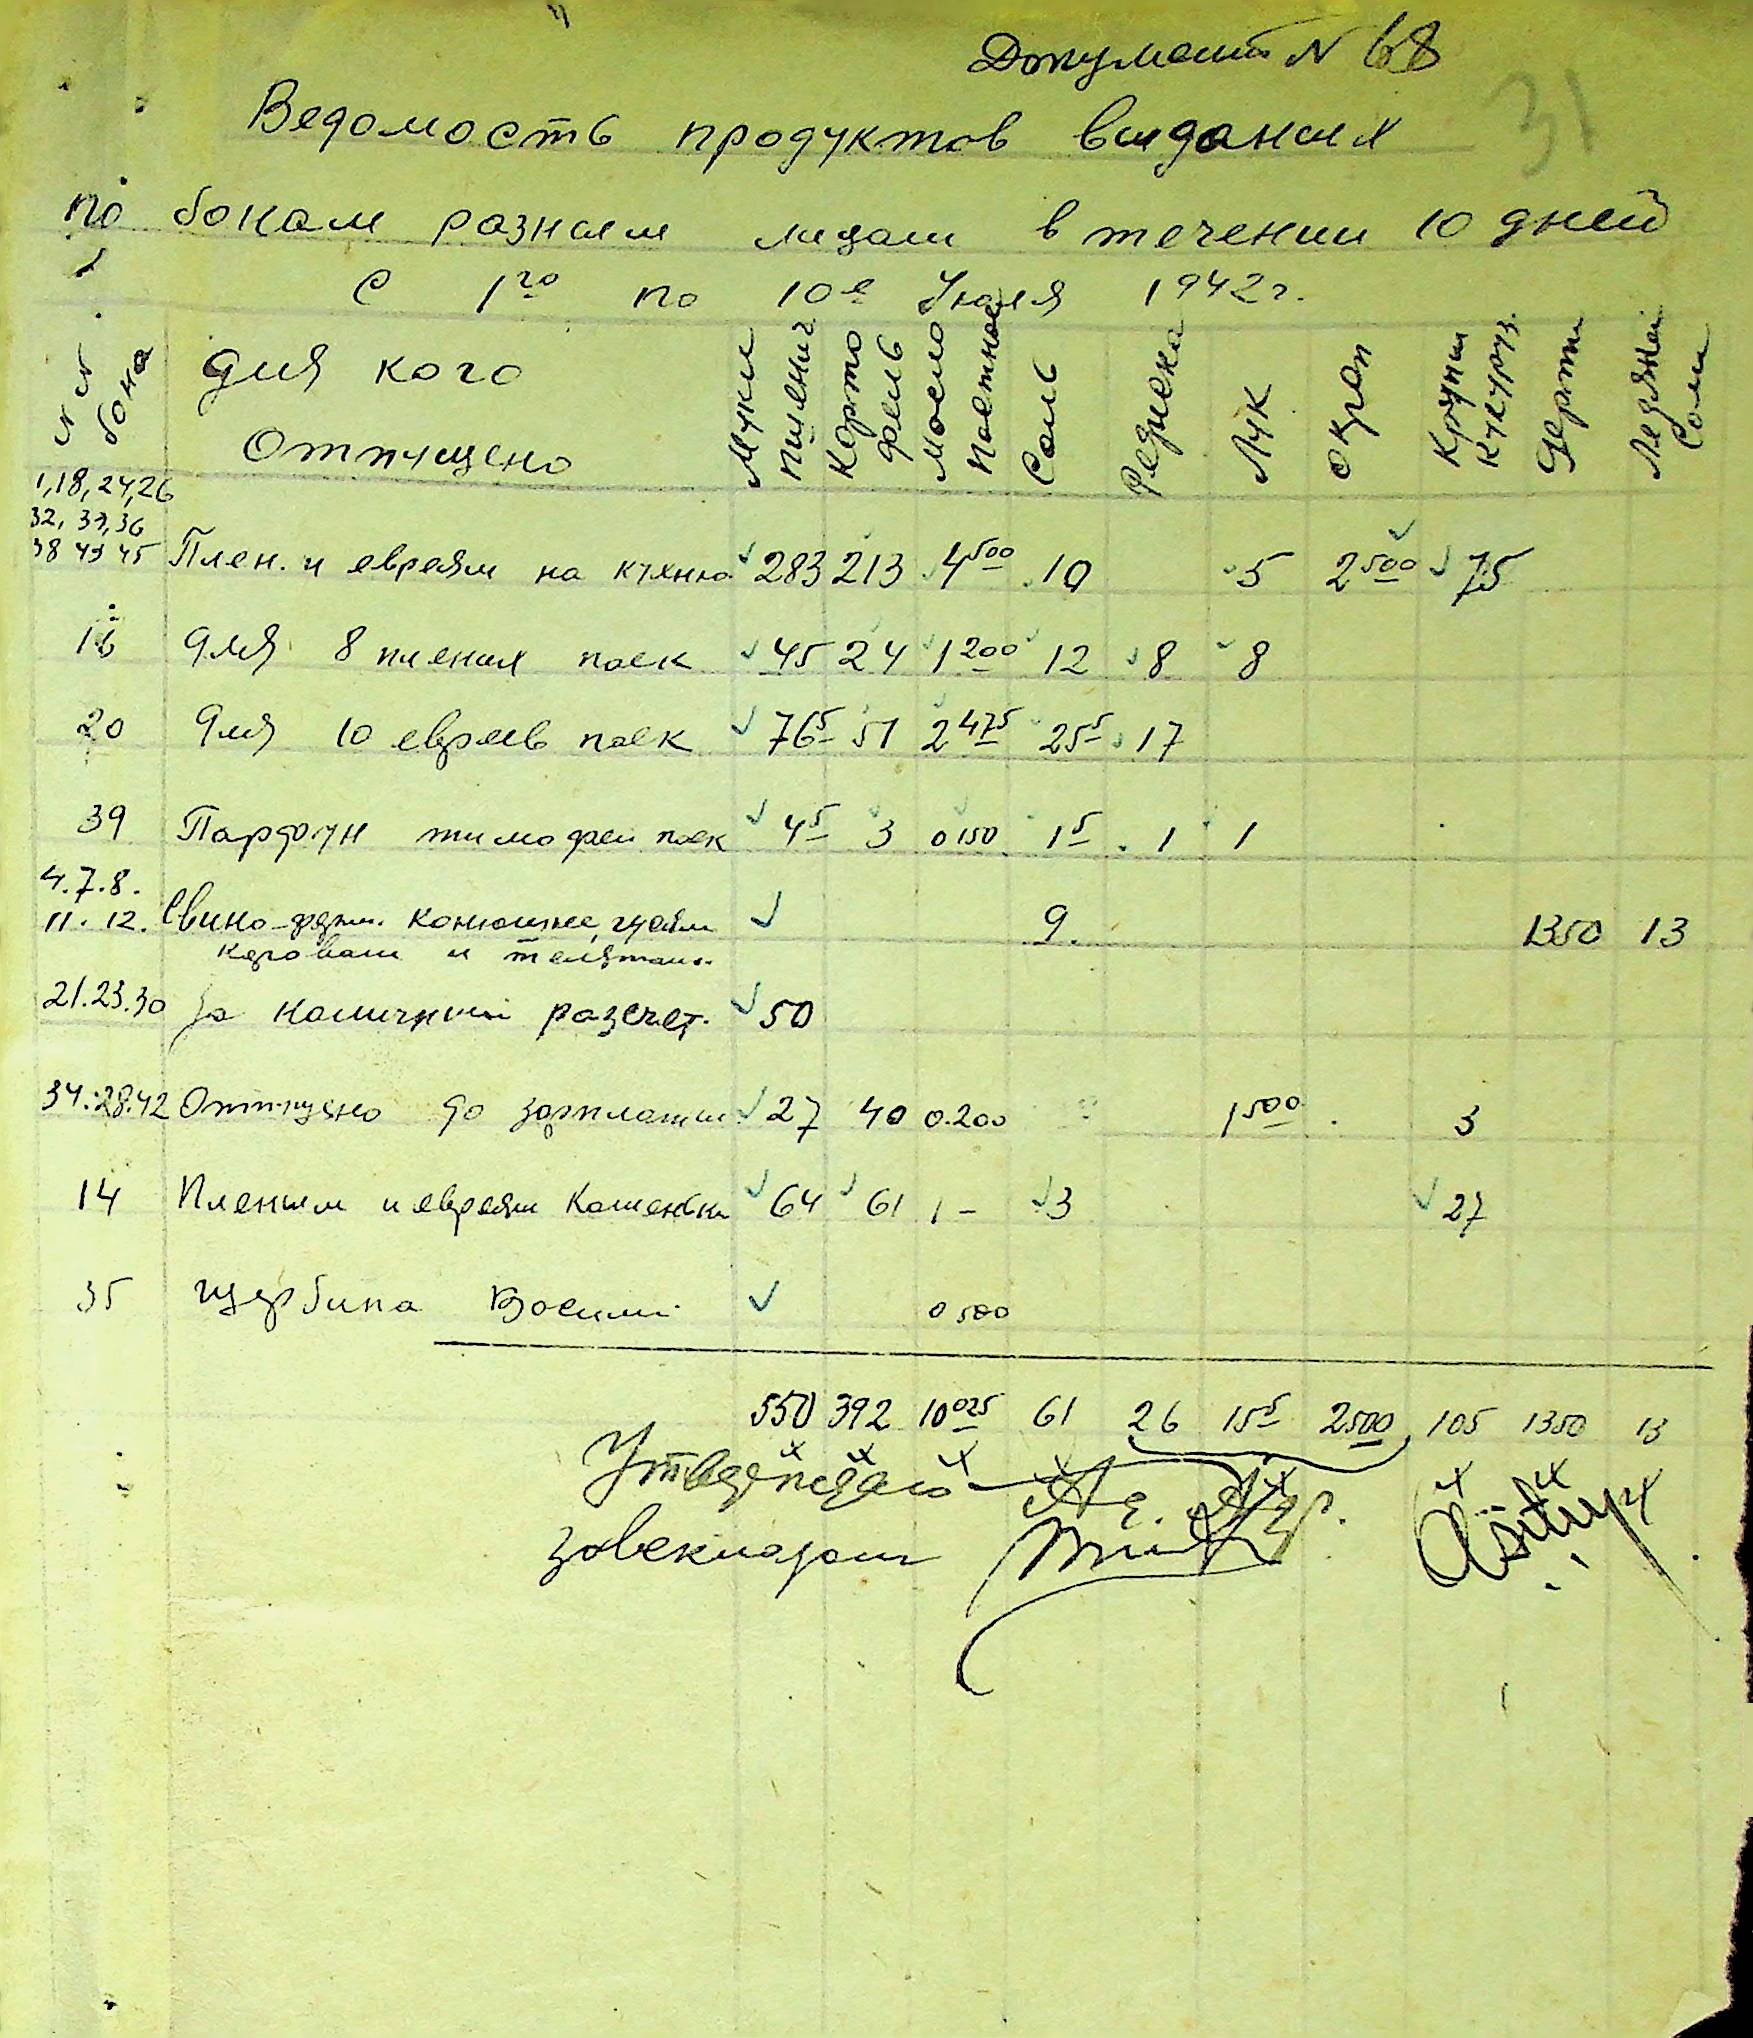 Документ N 68
31
Ведомость продуктов выданых
по бонам разным лицам в течении 10 дней
С 1го по 10е Июля 1942г.
N N бона Для кого Отпущено Муки пшенич Карто фель Масло постное Соль Редиска Лук Окроп Крупы кукуруз. Дерти Ледяной соли
1,18,24,26 32, 37,36 38 43 45 Плен. и евреям на кухню 283 213 4500 10 5 2500 75
16 Для 8 пленых паек 45 24 1200 12 8 8
20 Для 10 евреев паек 765 51 2475 255 17
39 Парфоун тимофей паек 45 3 0150 15 1 1
4.7.8. 11. 12. Свино-ферм. конюшне, гусям коровам и телятам. 9. 1350 13
21.23.30 За наличный расчет. 50
34.28.42 Отпущено до зарплаты 27 40 0.200 1500 3
14 Пленым и евреям Каменьки 64 61 1 – 3 27
35 Щербина Василий 0500
550 392 10025 61 26 155 2500 105 1350 13
Утверждаю
завскладом